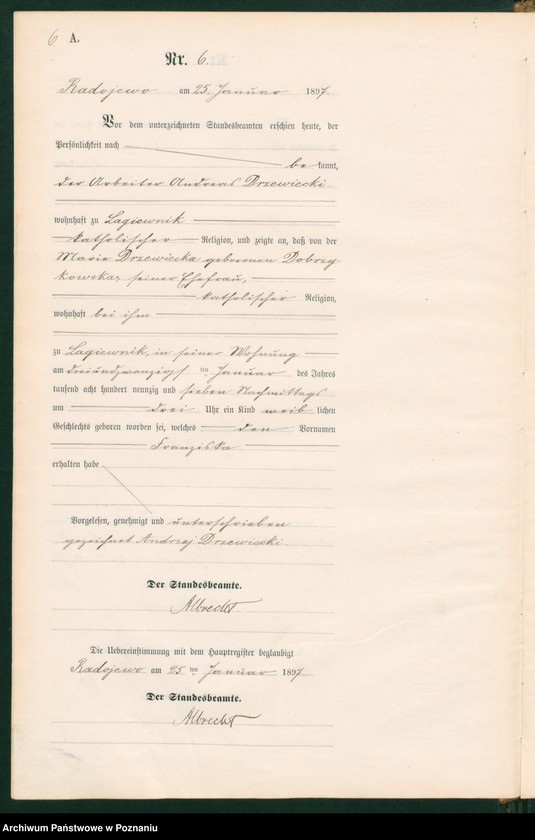 6 A.
Nr. 6.
Radojewo am 25 Januar 1897.
Vor dem unterzeichneten Standesbeamten erschien heute, der
Persönlichkeit nach
be kannt,
der Arbeiter Andreas Drzewiecki
wohnhaft zu Lagiewnik
katholischer Religion, und zeigte an, daß von der
Marie Drzewiecka geborenen Dobrzy-
kowska, seiner Ehefrau,
katholischer Religion,
wohnhaft bei ihm
zu Lagiewnik, in seiner Wohnung
am dreiundzwanzigsten Januar des Jahres
tausend acht hundert neunzig und sieben Nachmittags
um drei Uhr ein Kind weib lichen
Geschlechts geboren worden sei, welches den Vornamen
Franziska
erhalten habe
Vorgelesen, genehmigt und unterschrieben
gezeichnet Andrzej Drzewiecki.
Der Standesbeamte.
Albrecht
Die Uebereinstimmung mit dem Hauptregister beglaubigt
Radojewo am 25 ten Januar 1897
Der Standesbeamte.
Albrecht
Archiwum Państwowe w Poznaniu